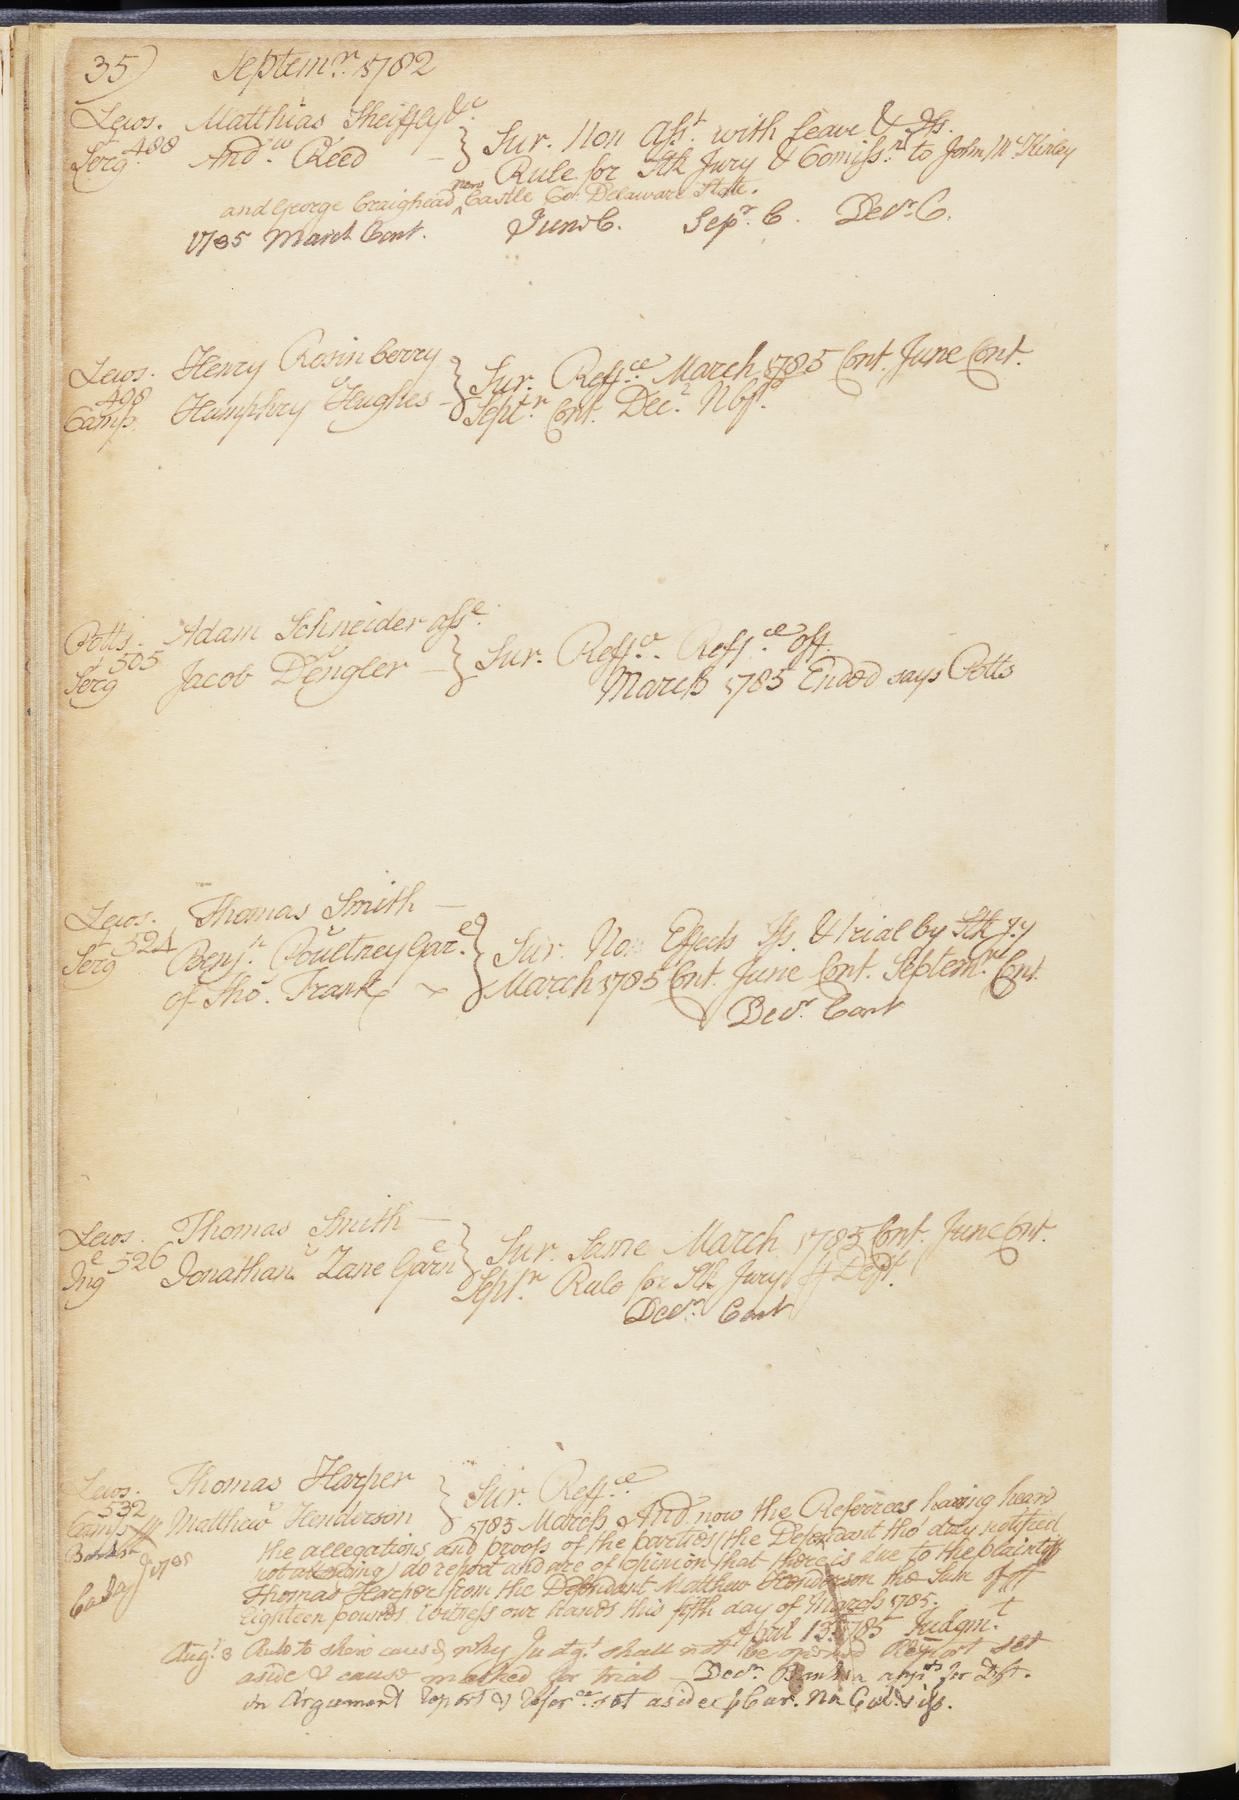 35) Septem.r 1782
Lews. Matthias Sheiffly &c
Serg 488 And.w Reed } Sur. Non Asst. with leave & Iss.
Rule for Stk Jury & Comiss.n to John McKinley
and George Craighead New Castle Co. Delaware State.
1785 March Cont. June C. Sep.r C. Dec.r C.
Lews. Henry Rosinberry } Sur. Reff.ce March 1785 Cont. June Cont.
498
Camp. Humphrey Hughes Sept.r Cont. Dec.r
Potts. Adam Schneider asse. } Sur. Reff.ce Reff.ce off.
Serg 505 Jacob Dengler March 1785 Ended says Potts
Lews. Thomas Smith
Serg 524 Benj.n Poultney Gar.e } Sur. Non Effects Iss. & trial by Stk Jy
of Tho.s Frank March 1785 Cont. June Cont. Septem.r Cont.
Decr. Cont
Lews. Thomas Smith } Sur. Same March 1785 Cont. June Cont.
Ing.e 526 Jonathan Zane Garn.e Sept.r Rule for Stk Jury Deft.
Decr. Cont
Lews. Thomas Harper } Sur. Reff.ce
532
Camp Matthew Henderson 1785 March And now the Referrees having heard
Bankson the allegations and proofs of the parties (the Defendant tho' duly notified
not attending) do report and are of opinion that there is due to the plaintiff
Thomas Harper from the Defendant Matthew Henderson the Sum of
Eighteen pounds Witness our hands this fifth day of March 1785.
April 13. 1785 Judgm.t
Aug.t 3 Rule to shew cause why Judg.t shall not be opened Report set
aside & cause marked for trial Decr. Bankson app.rs for Dft.
on Arguement Report & Refer.ce set aside